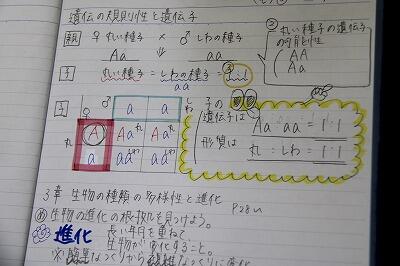 遺伝の規則性と遺伝子
親 ♀ 丸い種子 × ♂ しわの種子
Aa ⇓ aa
② 丸い種子の遺伝子の可能性
AA
Aa
子 丸い種子 : しわの種子 = 1:1
aa
子
♀ ♂ a a
丸 A Aa丸 Aa丸
a aaしわ aaしわ
しわ
子の遺伝子は
Aa : aa = 1:1
形質は
丸 : しわ = 1:1
3章 生物の種類の多様性と進化
め 生物の進化の根拠を見つけよう。 P28~
進化 長い年月を重ねて
生物が変化すること。
※簡単なつくりから複雑なつくりに変化